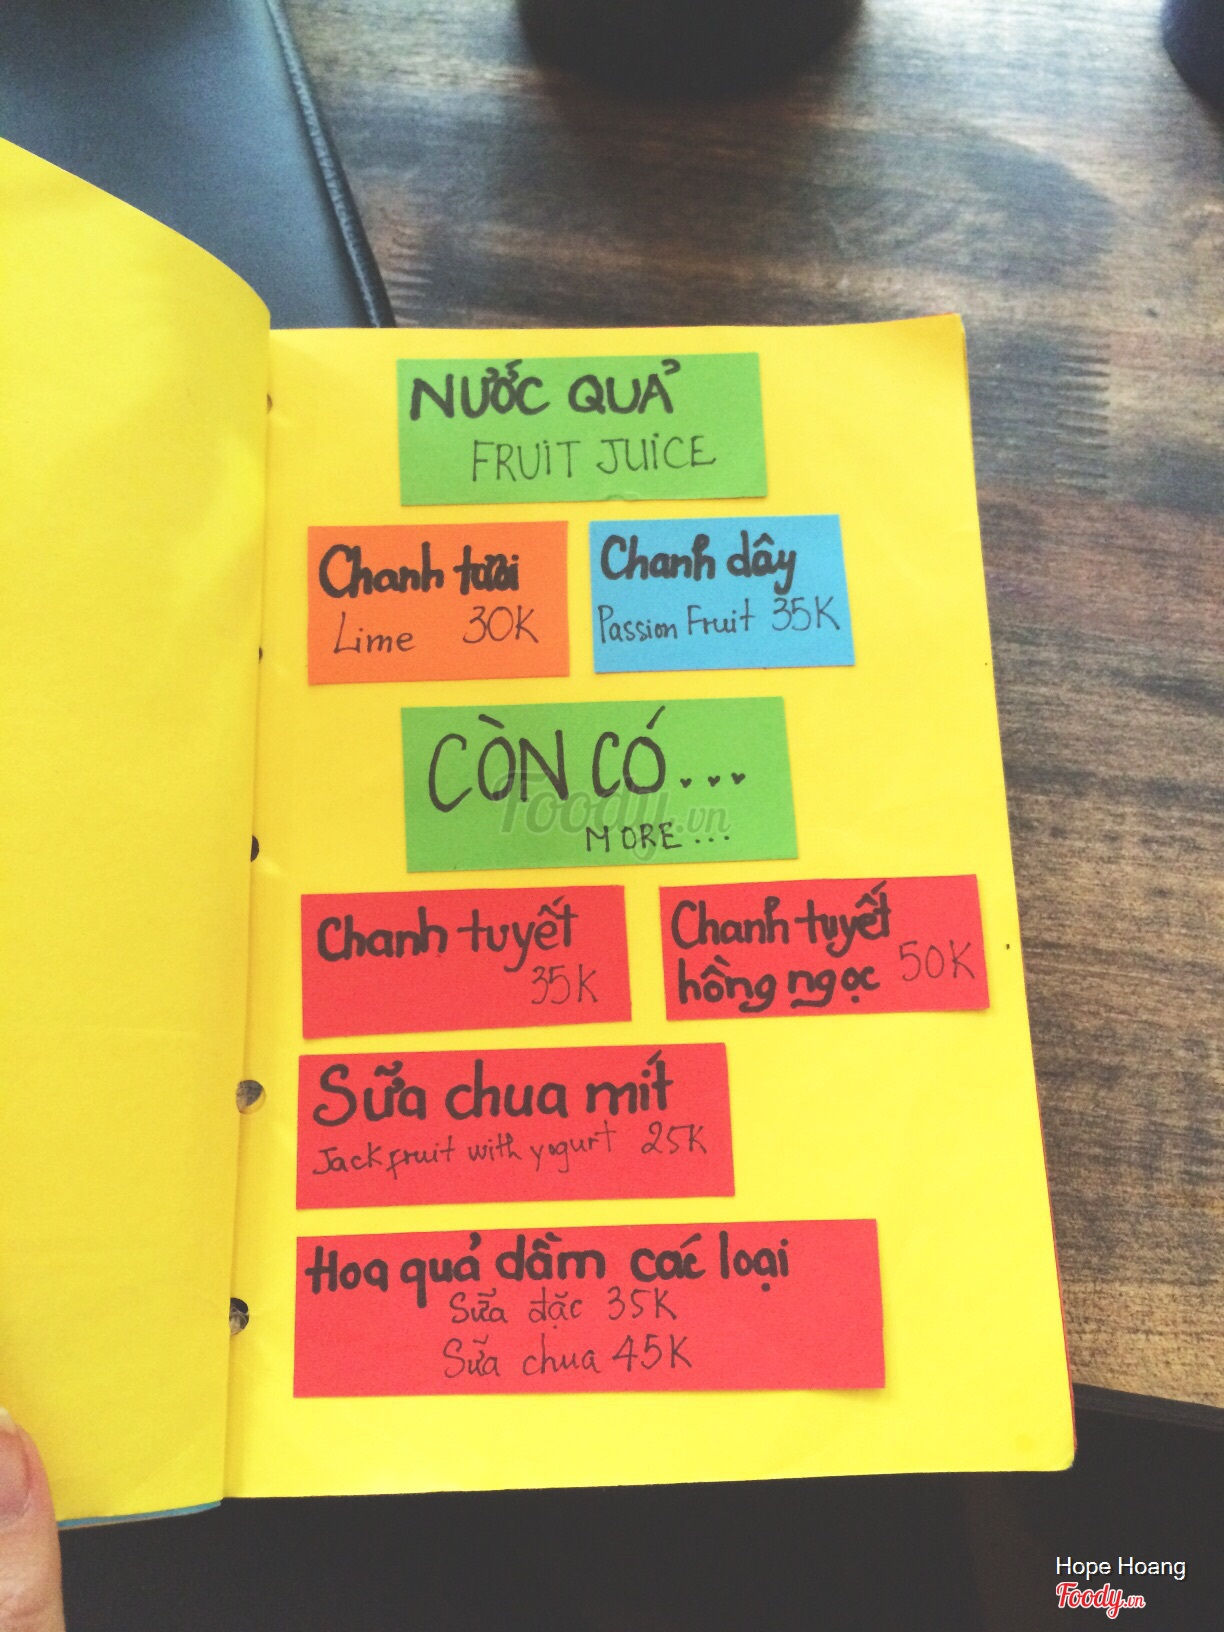 NƯỚC QUẢ
FRUIT JUICE
Chanh tươi
Lime 30K
Chanh dây
Passion Fruit 35K
CÒN CÓ...
MORE...
Foody.vn
Chanh tuyết
35K
Chanh tuyết
hồng ngọc 50K
Sữa chua mít
Jackfruit with yogurt 25K
Hoa quả dầm các loại
Sữa đặc 35K
Sữa chua 45K
Hope Hoang
Foody.vn